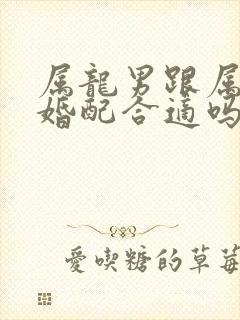 属龍男跟属
婚配合適吗
愛喫糖的草莓